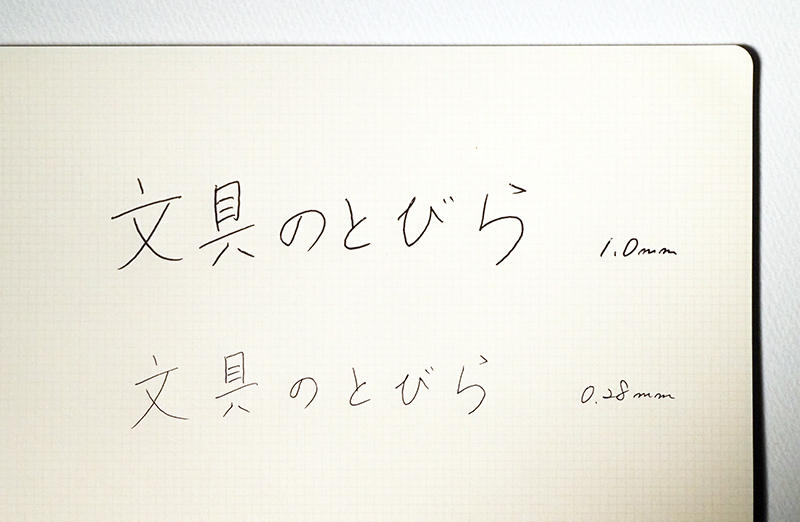 文具のとびら 1.0mm
文具のとびら 0.28mm